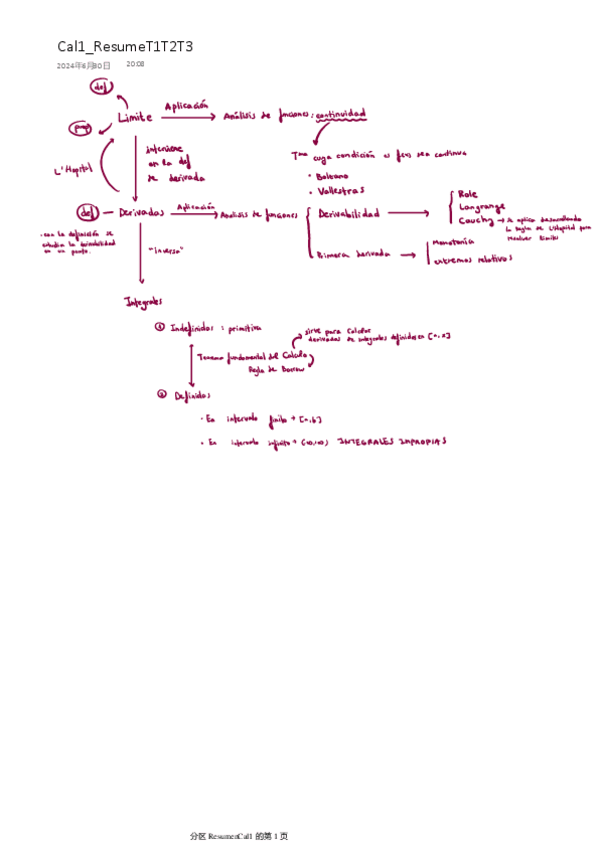 Cal1_ResumeT1T2T3
2024年6月30日 20:08
def
prop
Límite
Aplicación
Análisis de funciones: continuidad
Tma cuya condición es f(x) sea continua
• Bolzano
• Vallestras
L'Hopital
interviene
en la def
de derivada
def
Derivadas
Aplicación
Analisis de funciones
Derivabilidad
Role
Langrange
Cauchy → Se aplica desarrollando
la regla de L'Hopital para
resolver límites
• con la definición se
estudia la derivabilidad
en un punto.
Primera derivada
Monotonía
extremos relativos
"Inverso"
Integrales
① Indefinidas : primitiva
Teorema fundamental del Calculo
sirve para calcular
derivadas de integrales definidas en [a,x]
Regla de Barrow
② Definidas
• En intervalo finito → [a,b]
• En intervalo infinito → INTEGRALES IMPROPIAS
分区 ResumenCal1 的第 1 页